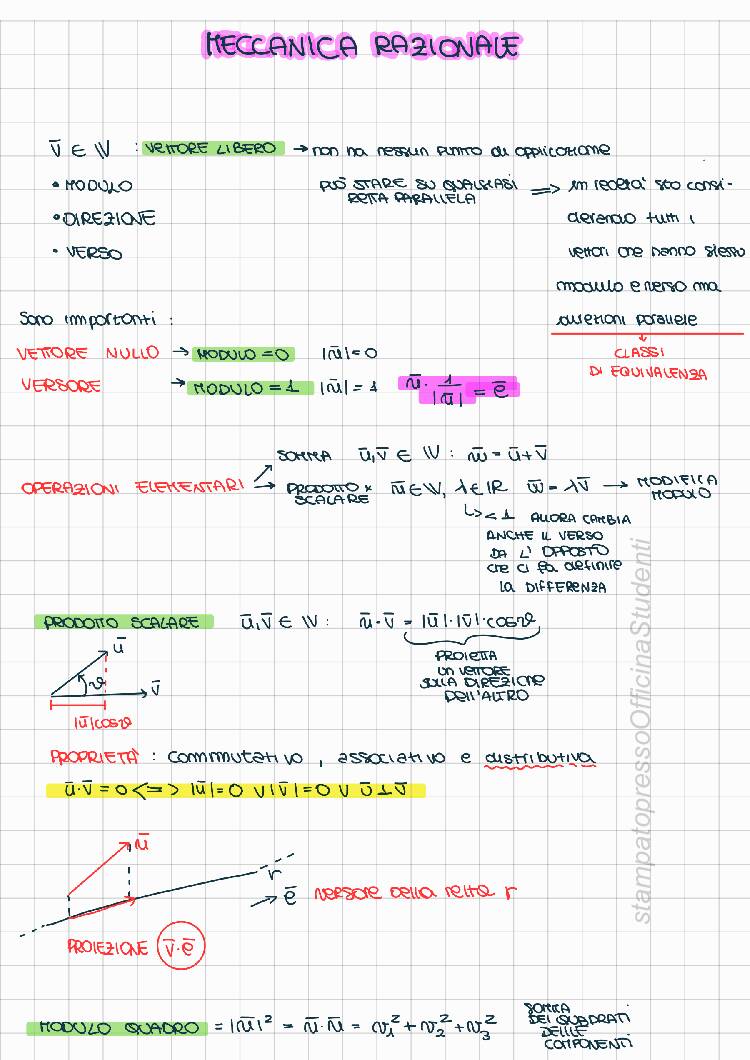 MECCANICA RAZIONALE
v̄ ∈ V : VETTORE LIBERO → non ha nessun punto di applicazione
• MODULO
• DIREZIONE
• VERSO
PUÒ STARE SU QUALSIASI
RETTA PARALLELA
⇒ in realtà sto consi-
derando tutti i
vettori che hanno stesso
modulo e verso ma
direzioni parallele
CLASSI
DI EQUIVALENZA
Sono importanti :
VETTORE NULLO → MODULO = 0 |ū| = 0
VERSORE → MODULO = 1 |ū| = 1 ū · 1/|ū| = ē
OPERAZIONI ELEMENTARI
SOMMA ū, v̄ ∈ V : w̄ = ū + v̄
PRODOTTO x
SCALARE
ū ∈ V, λ ∈ IR w̄ = λv̄ → MODIFICA
MODULO
↳ < 1 ALLORA CAMBIA
ANCHE IL VERSO
DA L' OPPOSTO
che ci fa definire
la DIFFERENZA
PRODOTTO SCALARE ū, v̄ ∈ V : ū · v̄ = |ū| · |v̄| · cosϑ
PROIETTA
UN VETTORE
SULLA DIREZIONE
DELL'ALTRO
ū
ϑ
v̄
|ū| cosϑ
PROPRIETÀ : commutativo, associativo e distributiva
ū · v̄ = 0 <=> |ū| = 0 ∨ |v̄| = 0 ∨ ū ⊥ v̄
ū
r
→ ē versore della retta r
PROIEZIONE v̄ · ē
MODULO QUADRO = |ū|² = ū · ū = v₁² + v₂² + v₃²
SOMMA
DEI QUADRATI
DELLE
COMPONENTI
stampatopressoOfficinaStudenti